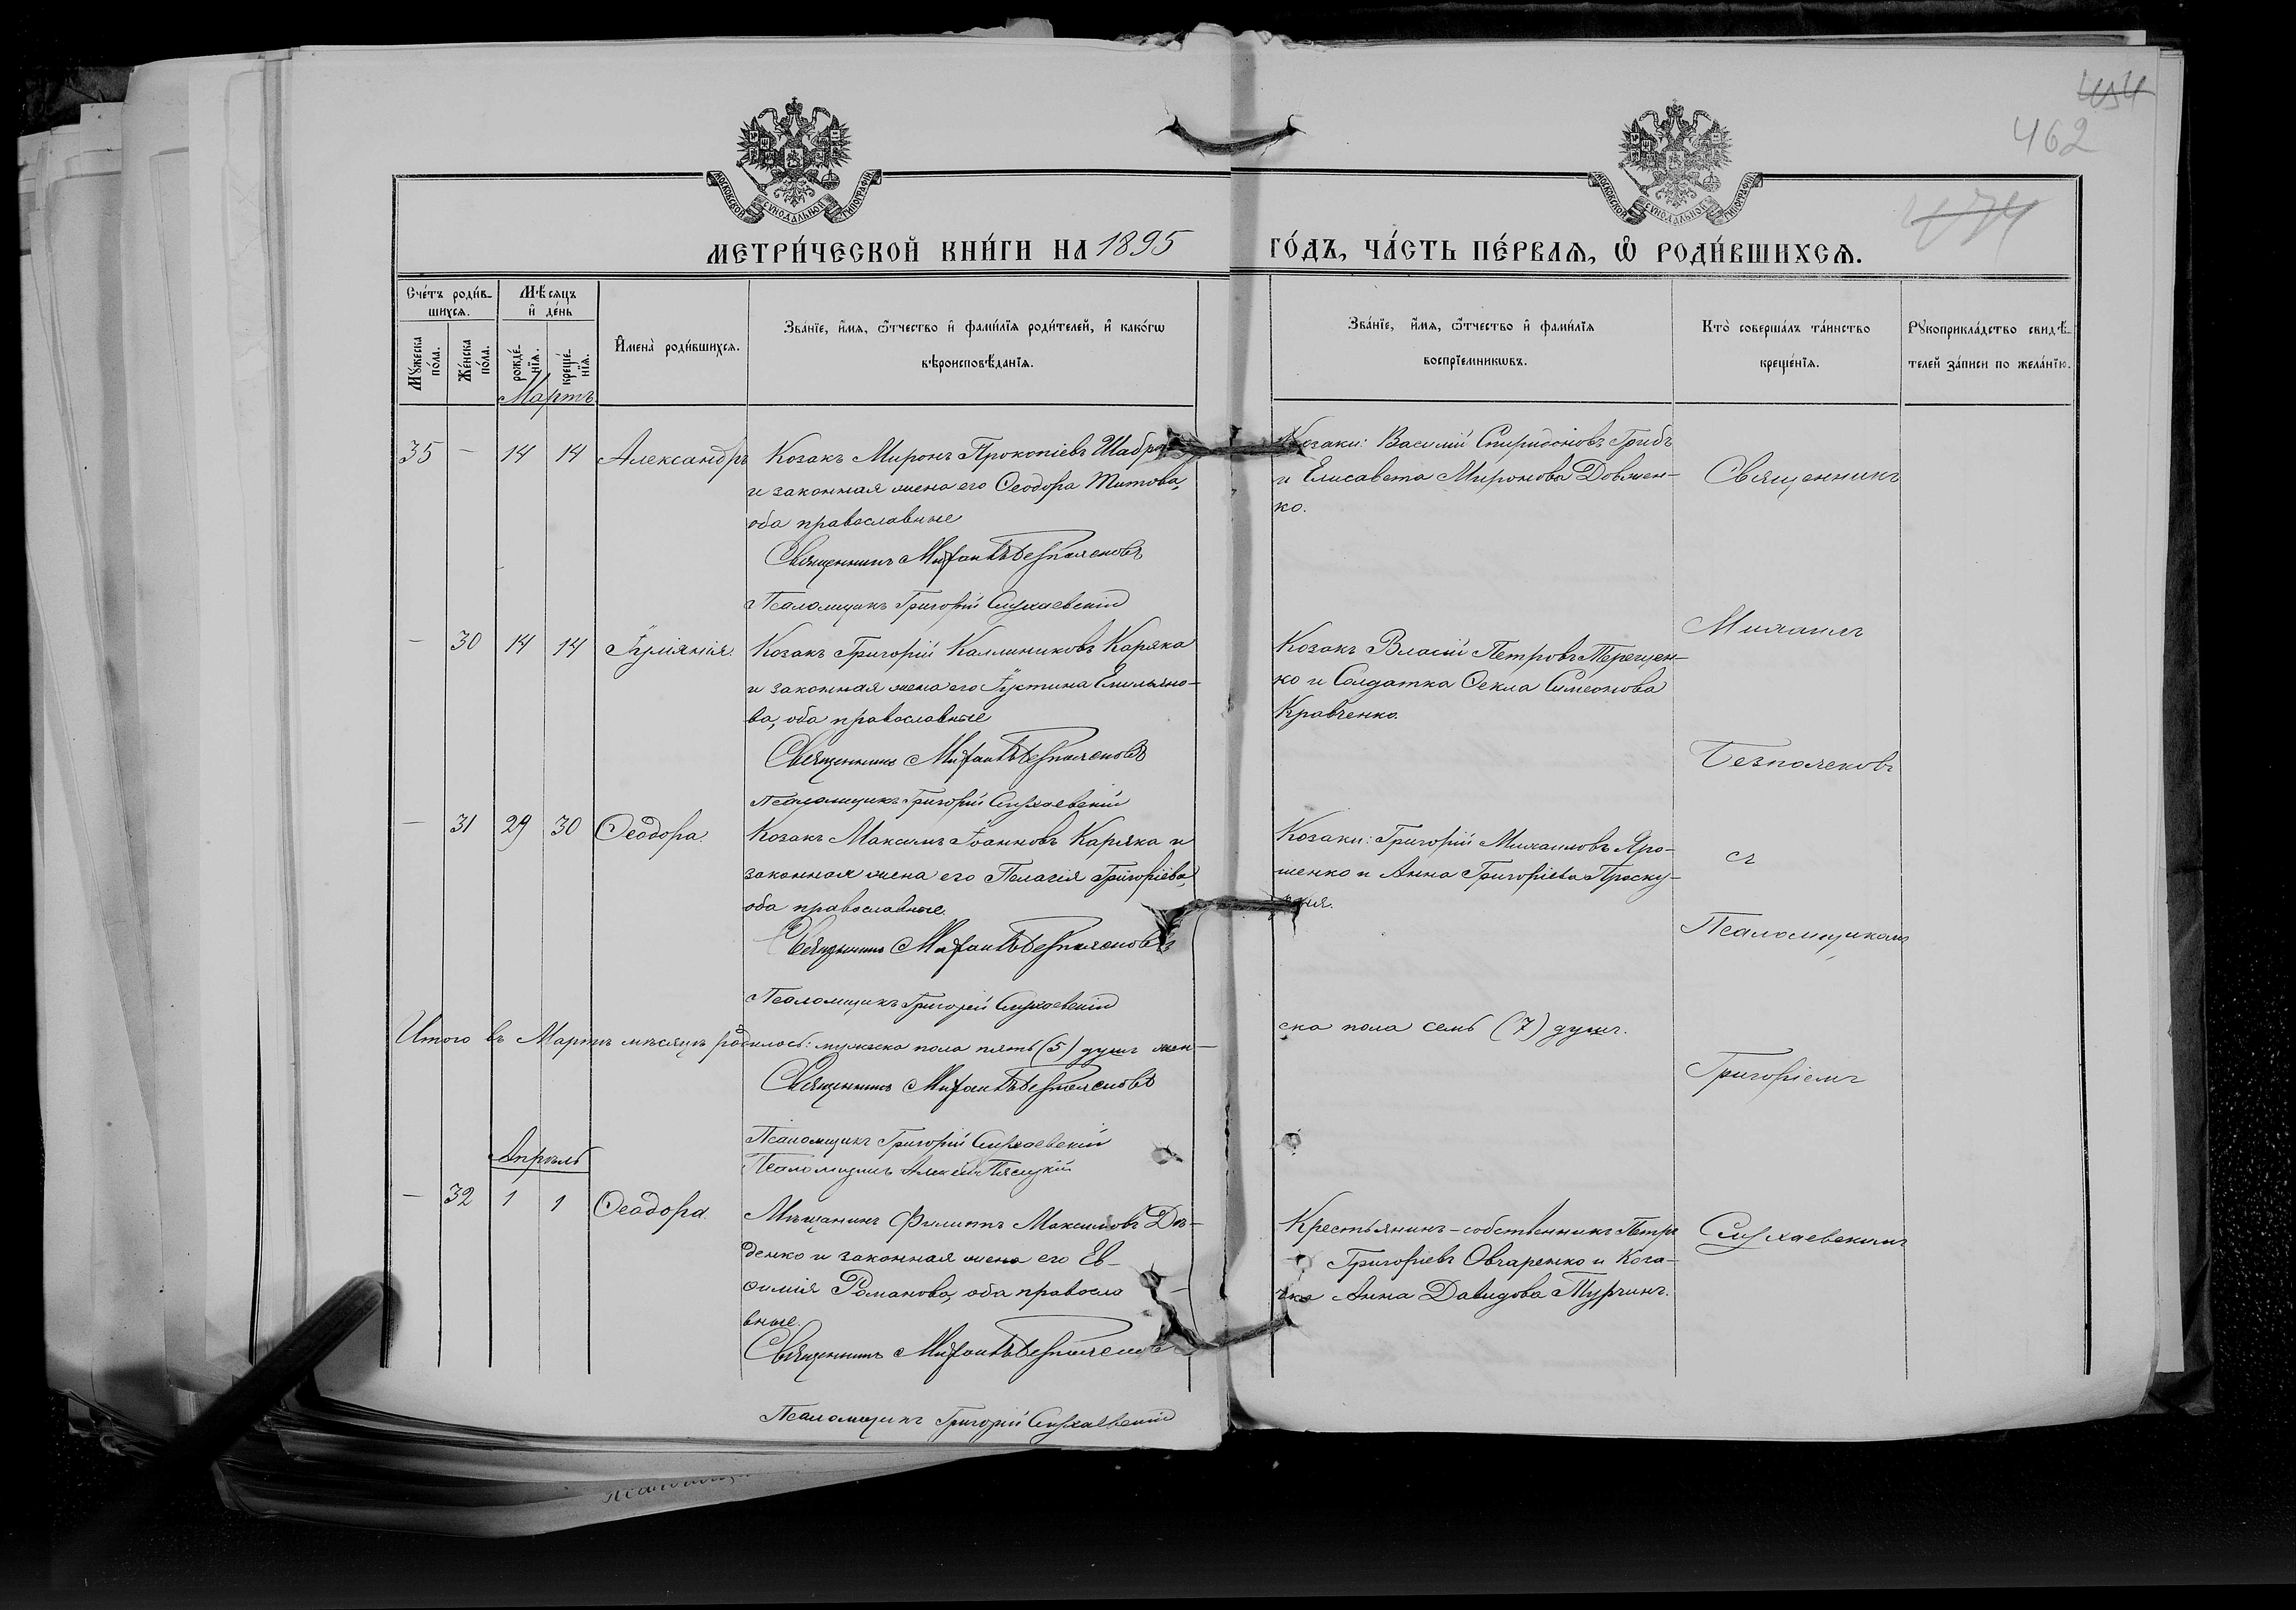 454
462
474
МОСКОВСКОЙ СѴНОДАЛЬНОЙ ТИПОГРАФІИ
МОСКОВСКОЙ СѴНОДАЛЬНОЙ ТИПОГРАФІИ
МЕТРИ́ЧЕСКОЙ КНИ́ГИ НА 1895 ГО́ДЪ, ЧА́СТЬ ПЕ́РВАѦ, Ѡ҆ РОДИ́ВШИХСѦ.
Сче́тъ роди́в-
шихсѧ.
Мѣ́сѧцъ
и҆ де́нь
Мꙋ́жеска
по́ла.
Же́нска
по́ла.
рожде́-
нїѧ.
креще́-
нїѧ.
И҆мена̀ роди́вшихсѧ.
Зва́нїе, и҆́мѧ, ѻ҆́тчество и҆ фами́лїѧ роди́телей, и҆ како́гѡ
вѣроисповѣ́данїѧ.
Зва́нїе, и҆́мѧ, ѻ҆́тчество и҆ фами́лїѧ
воспрїе́мникѡвъ.
Кто̀ соверша́лъ та́инство
креще́нїѧ.
Рꙋкоприкла́дство свидѣ́-
телей за́писи по жела́нїю.
Мартъ
35 — 14 14 Александръ Козакъ Миронъ Прокопіевъ
и законная жена его Ѳеодора Титова,
оба православные
Священникъ Михаилъ Безпалековъ
Псаломщикъ Григорій Слухаевскій
Козаки: Василій Спиридоновъ Грибъ
и Елисавета Миронова Довжен-
ко.
Священникъ
— 30 14 14 Іуліанія. Козакъ Григорій Каллиниковъ Каряка
и законная жена его Іустина Емильяно-
ва, оба православные
Священникъ Михаилъ Безпалековъ
Псаломщикъ Григорій Слухаевскій
Козакъ Власій Петровъ Терещен-
ко и Солдатка Ѳекла Симеонова
Кравченко.
Михаилъ
Безпалековъ
— 31 29 30 Ѳеодора. Козакъ Максимъ Іоанновъ Каряка и
законная жена его Пелагія Григоріева,
оба православные.
Священникъ Михаилъ Безпалековъ
Псаломщикъ Григорій Слухаевскій
Козаки: Григорій Михаиловъ Яро-
шенко и Анна Григоріева Проску-
рня.
съ
Псаломщикомъ
Итого въ Мартѣ мѣсяцѣ родилось: мужеска пола пять (5) душъ жен-
ска пола семь (7) душъ.
Священникъ Михаилъ Безпалековъ
Псаломщикъ Григорій Слухаевскій
Псаломщикъ Алексѣй
Григоріемъ
Апрѣль
— 32 1 1 Ѳеодора. Мѣщанинъ Филиппъ Максимовъ
денко и законная жена его Ев-
ѳимія Романова, оба правосла
вные.
Священникъ Михаилъ Безпалековъ
Псаломщикъ Григорій Слухаевскій
Крестьянинъ-собственникъ Петръ
Григоріевъ Овчаренко и Коза-
чка Анна Давидова Турчинъ.
Слухаевскимъ